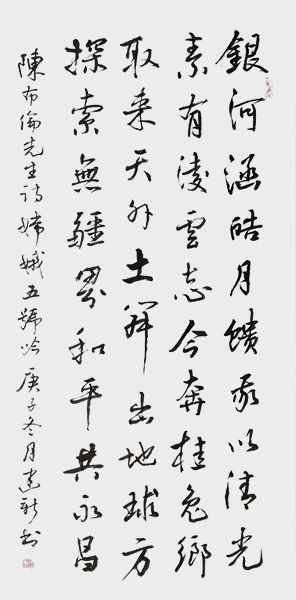 銀河涵皓月饋我以清光
素有凌雲志今奔桂兔鄉
取来天外土出地球方
探索無疆界和平共永昌
陳布倫先生诗嫦娥五號吟庚子冬月建新书